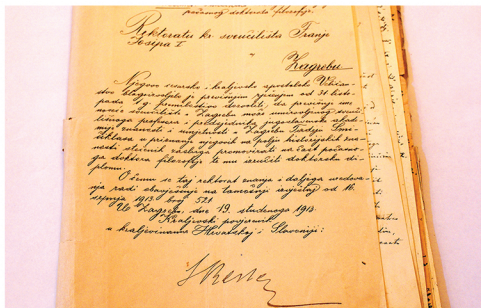 počasnog doktorata filozofije.
Rektoratu kr. sveučilišta Franje
Josipa I
Zagrebu
Njegovo cesarsko i kraljevsko apostolsko Veličan-
stvo blagoizvoljelo je previšnjim rješenjem od 31 listo-
pada t. g. premilostivo dozvoliti, da previšnji ime
noseće sveučilište u Zagrebu može umirovljenog sveuči-
lišnoga profesora i predsjednika jugoslavenske akade-
mije znanosti i umjetnosti u Zagrebu Tadiju Smi-
čiklasa u priznanju njegovih na polju historijskih zna-
nosti stečenih zasluga promovirati na čast počasno-
ga doktora filozofije te mu izručiti doktorsku di-
plomu.
O čemu se taj rektorat znanja i daljega uredova-
nja radi obavješćuje na tamošnji izvještaj od 16.
srpnja 1913 broj 521
U Zagrebu, dne 19. studenoga 1913.
Kraljevski povjerenik
u kraljevinama Hrvatskoj i Slavoniji: